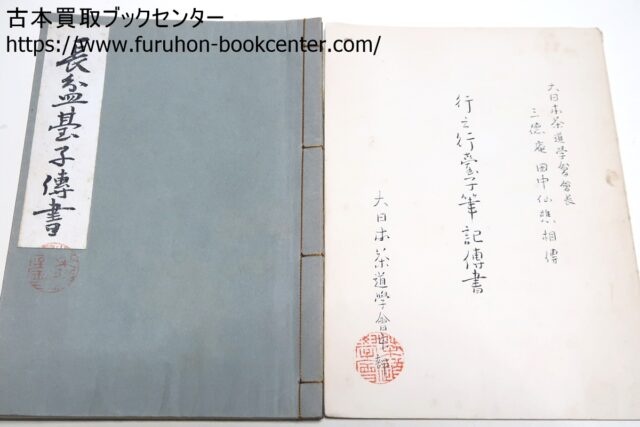 古本買取ブックセンター
https://www.furuhon-bookcenter.com/
長盆臺子傳書
大日本茶道学会会長
三徳庵 田中仙樵相傳
行之行臺子筆記傳書
大日本茶道學會本部